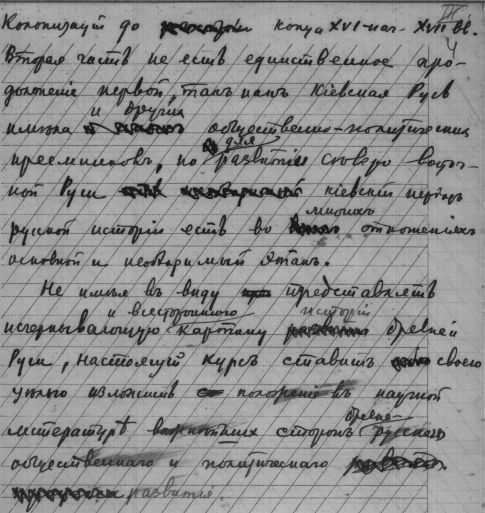 IX
4
Колонизаціи до конца XVI-нач. XVII вв.
Вторая часть не есть единственное про-
долженіе первой, такъ какъ Кіевская Русь
имѣла и другихъ общественно-политическихъ
преемниковъ, но для развитія сѣверо-восточ-
ной Руси кіевскій періодъ
русской исторіи есть во многихъ отношеніяхъ
основной и необходимый этапъ.
Не имѣя въ виду представлять
исчерпывающую и всестороннюю картину исторіи древней
Руси, настоящій курсъ ставитъ своего
цѣлью изложить положеніе въ научной
литературѣ важнѣйшихъ сторонъ древне-русскаго
общественнаго и политическаго
развитія.